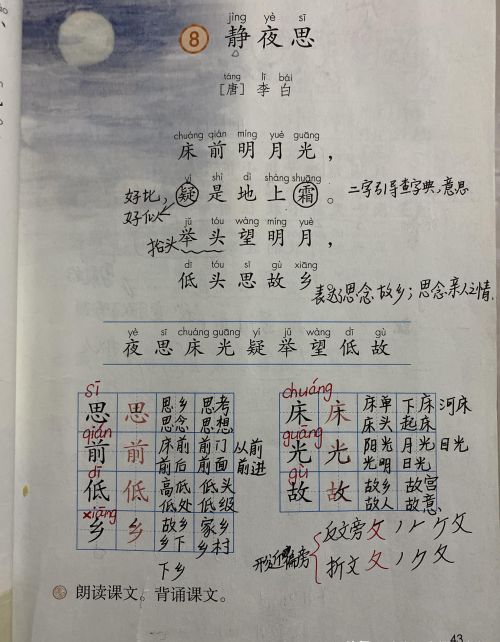 jìng yè sī
8 静夜思
táng lǐ bái
[唐] 李 白
chuáng qián míng yuè guāng
床前明月光，
yí shì dì shàng shuāng
好比， 疑是地上霜。 二字引导查字典，意思
好似
jǔ tóu wàng míng yuè
抬头 举头望明月，
dī tóu sī gù xiāng
低头思故乡 表达思念故乡；思念亲人之情.
yè sī chuáng guāng yí jǔ wàng dī gù
夜思床光疑举望低故
sī chuáng
思 思 思乡 思考 床 床 床单 下床 河床
思念 思想 床头 起床
qián guāng
前 前 床前 前门 从前 光 光 阳光 月光 日光
前后 前面 前进 光明 日光
dī gù
低 低 高低 低头 故 故 故乡 故宫
低处 低级 故人 故意
xiāng
乡 乡 故乡 家乡
乡下 乡村
下乡
形近偏旁 反文旁 攵 丿 一 ケ 攵
折文 夂 丿 ク 夂
朗读课文。背诵课文。
43